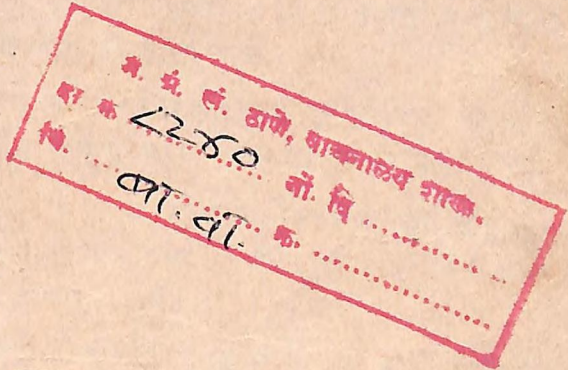 म. ग्रं. सं. ठाणे, वाचनालय शाखा.
दा. क्र. ८२४० नों. दि ..................
वि. .................. क्र. ..................